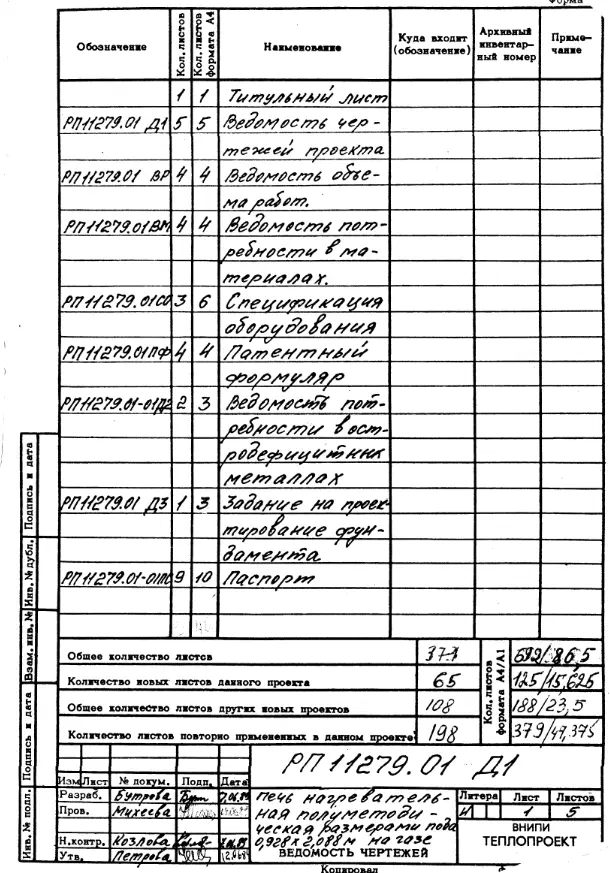 Форма
Обозначение Кол. листов Кол. листов формата А4 Наименование Куда входит (обозначение) Архивный инвентарный номер Примечание
1 1 Титульный лист
РП11279.01 Д1 5 5 Ведомость чер-
тежей проекта
РП11279.01 ВР 4 4 Ведомость объе-
ма работ.
РП11279.01ВМ 4 4 Ведомость пот-
ребности в ма-
териалах.
РП11279.01СО 3 6 Спецификация
оборудования
РП11279.01ПФ 4 4 Патентный
формуляр
РП11279.01-01Д2 2 3 Ведомость пот-
ребности в ост-
родефицитных
металлах
РП11279.01 Д3 1 3 Задание на проек-
тирование фун-
дамента
РП11279.01-01ПС 9 10 Паспорт
Общее количество листов
Количество новых листов данного проекта 65 125/15,625
Общее количество листов других новых проектов 108 188/23,5
Количество листов повторно примененных в данном проекте 198 379/47,375
Кол. листов формата А4/А1
РП 11279.01 Д1
Изм Лист № докум. Подп. Дата
Разраб. Бутрова
Пров. Михеева
Н.контр. Козлова
Утв. Петрова
печь нагреватель-
ная полуметоди-
ческая размерами пода
0,928х2,088 м на газе
ВЕДОМОСТЬ ЧЕРТЕЖЕЙ
Литера Лист Листов
И 1 5
ВНИПИ
ТЕПЛОПРОЕКТ
Копировал
Инв. № подл. Подпись и дата Взам. инв. № Инв. № дубл. Подпись и дата